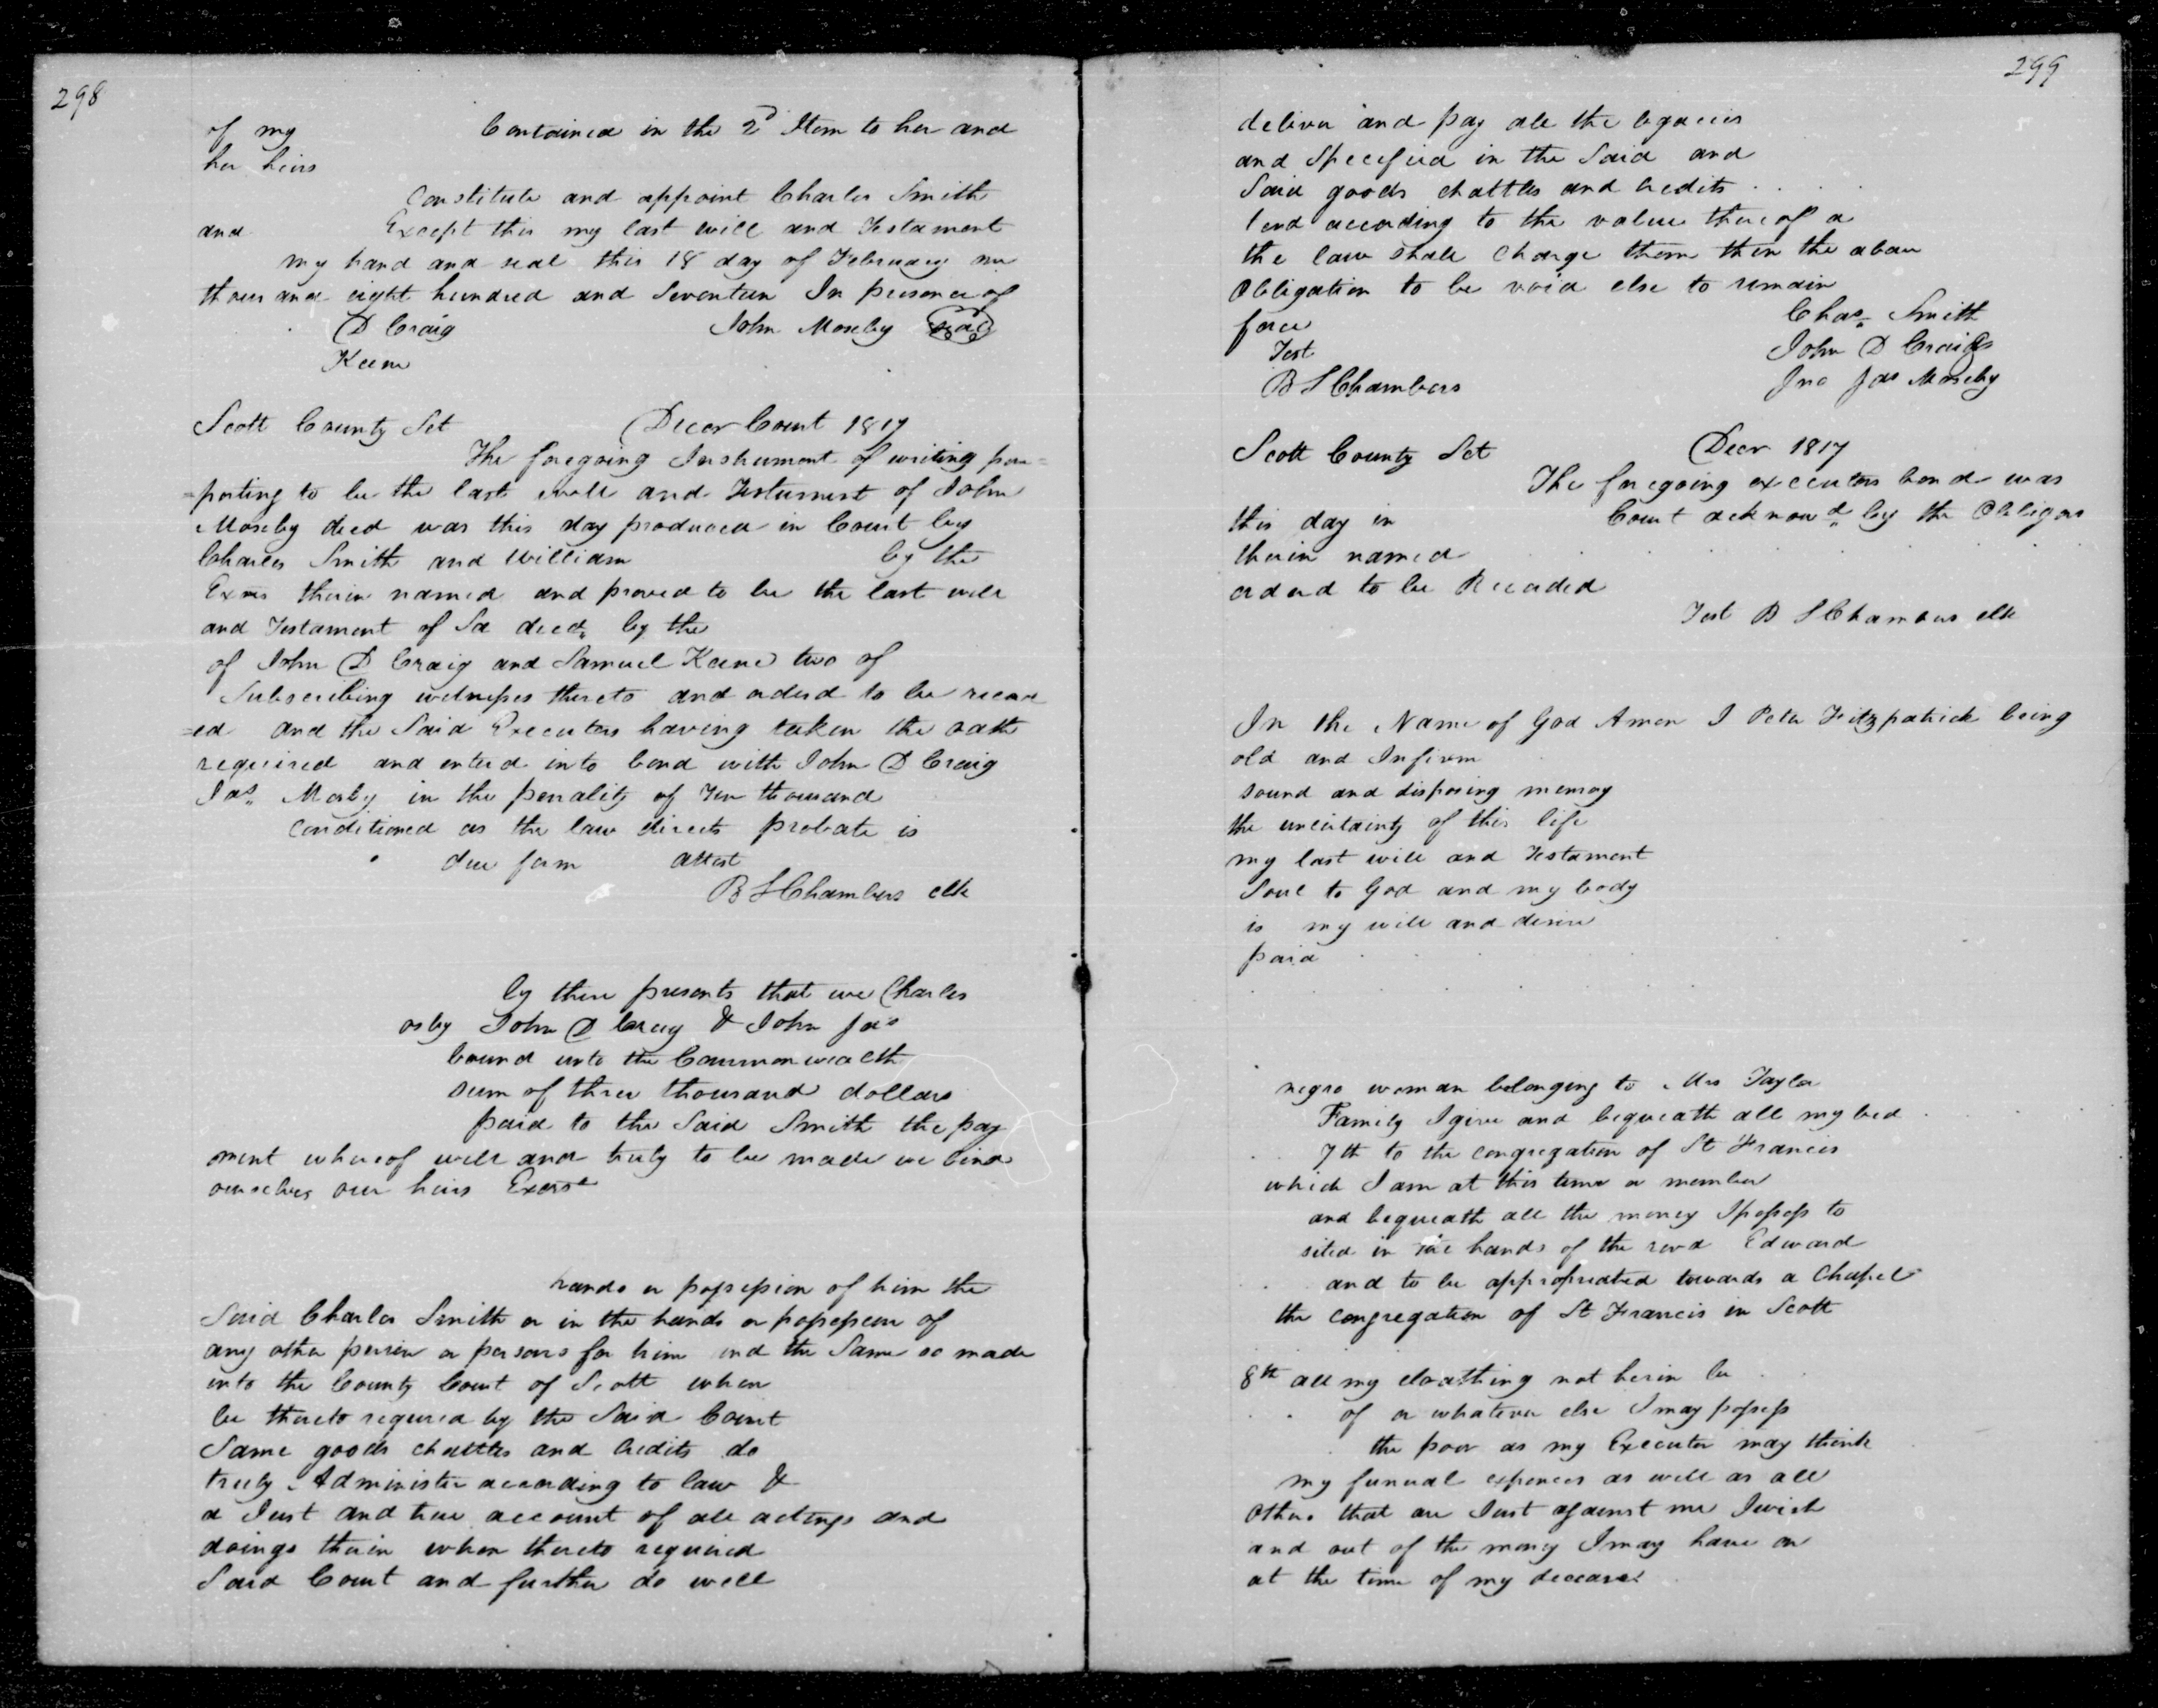 298
of my Contained in the 2d Item to her and
her heirs
Constitute and appoint Charles Smith
and Except this my last will and Testament
my hand and seal this 18 day of February
thousand eight hundred and Seventeen In presence of
D Craig John Moseby seal
Keene
Scott County Sct Decer Court 1817
The foregoing Instrument of writing pur=
=porting to be the last will and Testament of John
Moseby decd was this day produced in Court by
Charles Smith and William by the
Exors therein named and proved to be the last will
and Testament of Sd decd. by the
of John D Craig and Samuel Keene two of
Subscribing witnesses thereto and orderd to be record
=ed and the Said Executors having taken the oath
required and enterd into bond with John D Craig
Jas. Mosby in the penality of Ten thousand
conditioned as the law directs probate is
due form attest
B S Chambers clk
by these presents that we Charles
osby John D Craig & John Jas
bound unto the Commonwealth
sum of three thousand dollars
paid to the Said Smith the pay
ment whereof well and truly to be made we bind
ourselves our heirs Exors
hands or possession of him the
Said Charles Smith or in the hands or possession of
any other person or persons for him and the Same so made
into the County Court of Scott when
be thereto required by the Said Court
Same goods chattles and Credits do
truly Administer according to law &
a Just and true account of all actings and
doings therein when thereto required
Said Court and further do well
299
deliver and pay all the legacies
and Specified in the Said and
Said goods chattles and credits
tend according to the value thereof a
the law shall Charge them then the above
Obligation to be void else to remain
force Chas. Smith
Test John D Craig
B S Chambers Jno Jas Moseby
Scott County Sct Decr 1817
The foregoing executors bond was
this day in Court acknowd. by the Obligors
therein named
orderd to be Recorded
Test B S Chambers clk
In the Name of God Amen I Peter Fitzpatrick being
old and Infirm
sound and disposing memoy
the uncertainty of this life
my last will and Testament
Soul to God and my body
is my will and desire
paid
negro woman belonging to Mrs Taylor
Family I give and bequeath all my bed
7th to the congregation of St Francis
which I am at this time a member
and bequeath all the money I possess to
sited in the hands of the revd Edward
and to be appropreated towards a Chapel
the congregation of St Francis in Scott
8th all my cloathing not herin be
of or whatever else I may possess
the poor as my Executor may think
my funual expences as well as all
others that are Just against me I wish
and out of the money I may have on
at the time of my decease